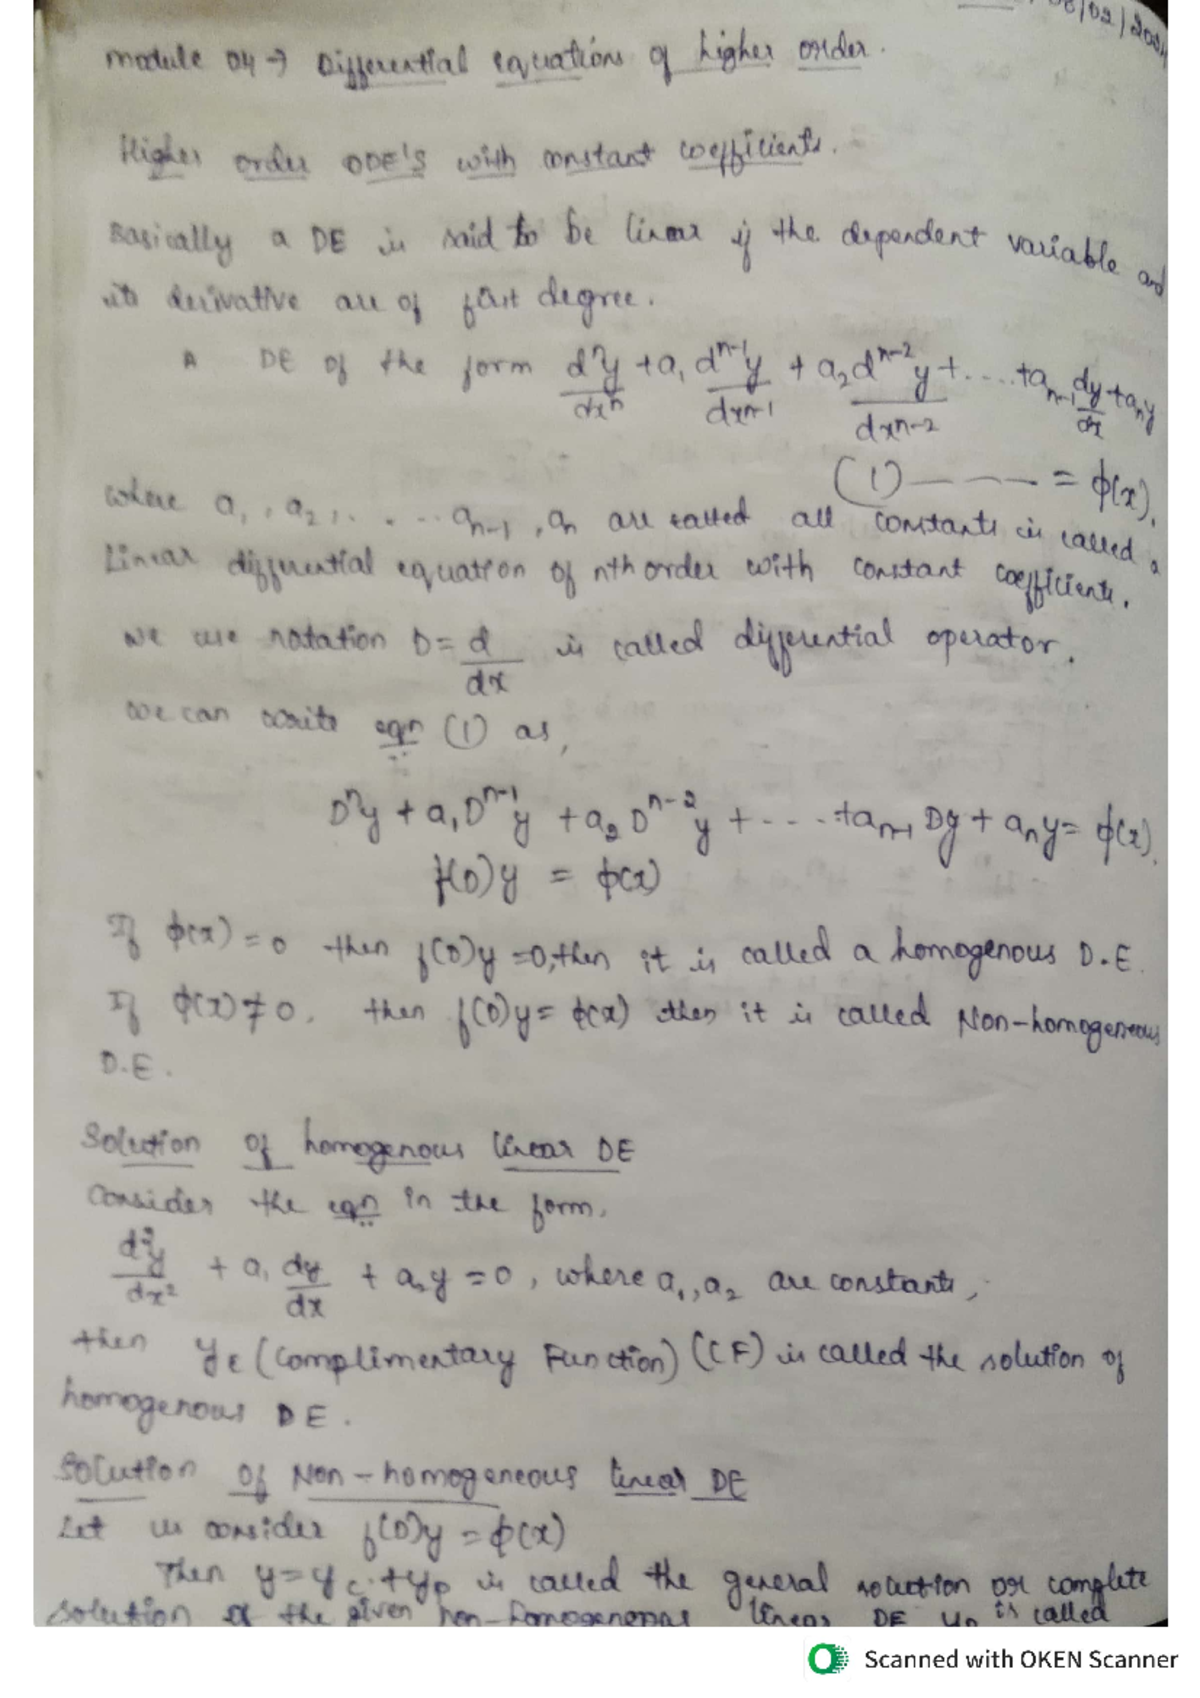 08/02/2024
Module 04 → Differential equations of higher order.
Higher order ODE'S with constant coefficients.
Basically a DE is said to be linear if the dependent variable and
its derivative are of first degree.
A DE of the form d^n y/dx^n + a₁ d^(n-1) y/dx^(n-1) + a₂ d^(n-2) y/dx^(n-2) + ..... + a_(n-1) dy/dx + a_n y
(1) ——— = ϕ(x).
where a₁, a₂, ..... a_(n-1), a_n are called all constants is called a
Linear differential equation of nth order with constant coefficients.
we use notation D = d/dx is called differential operator.
we can write eqn (1) as,
D^n y + a₁ D^(n-1) y + a₂ D^(n-2) y + - - - - + a_(n-1) Dy + a_n y = ϕ(x).
f(D)y = ϕ(x)
If ϕ(x) = 0 then f(D)y = 0, then it is called a homogenous D.E.
If ϕ(x) ≠ 0. then f(D)y = ϕ(x) then it is called Non-homogeneous
D.E.
Solution of homogenous linear DE
Consider the eqn in the form,
d²y/dx² + a₁ dy/dx + a₂y = 0, where a₁, a₂ are constants,
then y_c (Complimentary Function) (CF) is called the solution of
homogenous DE.
Solution of Non-homogeneous linear DE
Let us consider f(D)y = ϕ(x)
Then y = y_c + y_p is called the general solution or complete
solution of the given non-homogenous linear DE y_p is called
Scanned with OKEN Scanner